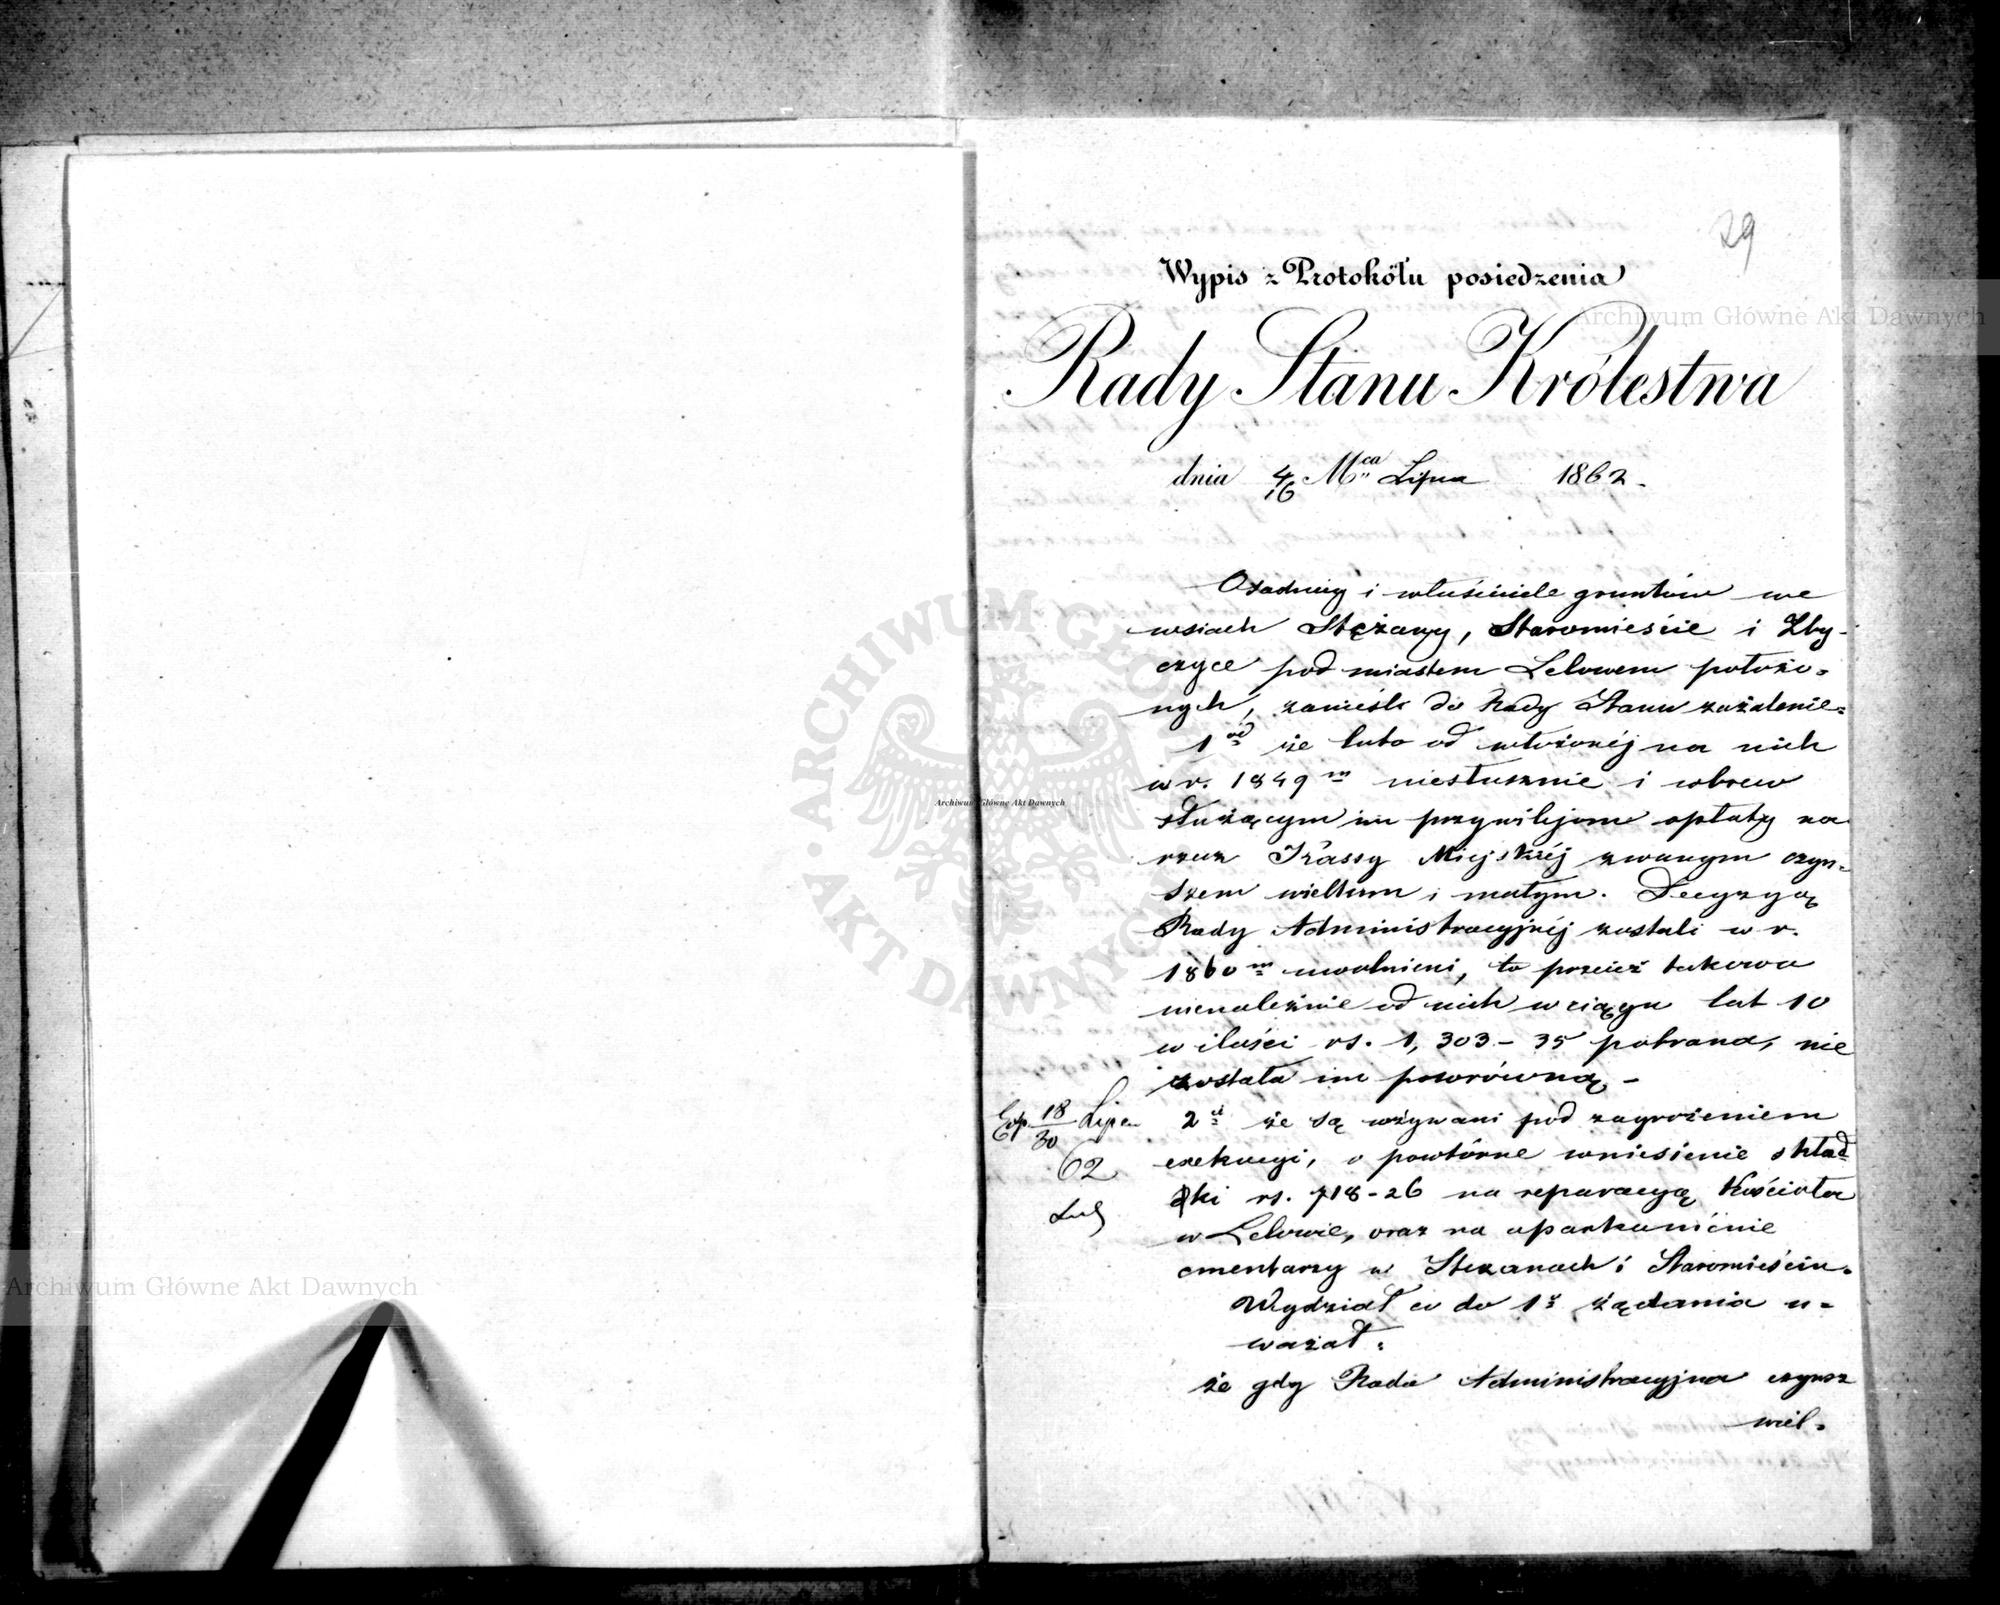 29
Wypis z Protokółu posiedzenia
Rady Stanu Królestwa
dnia 4/16 Mca Lipca 1862.
Osadnicy i właściciele gruntów we
wsiach Stężary, Staromieście i Zby-
czyce pod miastem Lelowem położo-
nych, zanieśli do Rady Stanu zażalenie:
1od że lubo od włożonéj na nich
w r. 1849m niesłusznie i wbrew
służącym im przywilejom opłaty na
rzecz Kassy Miejskiéj zwanym czyn-
szem wielkim i małym. Decyzyą
Rady Administracyjnéj zostali w r.
1860m uwolnieni, to przecież takowa
nienależnie od nich w ciągu lat 10
w ilości rs. 1,303-35 pobrana, nie
została im powróconą -
2e że są wzywani pod zagrożeniem
exekucyi, o powtórne wniesienie skład-
ki rs. 718-26 na reparacyą Kościoła
w Lelowie, oraz na oparkanienie
cmentarzy w Stęzarach i Staromieściu.
Wydział co do 1o żądania u-
ważał:
że gdy Rada Administracyjna czynsz
wiel-
Exp. 18/30 Lipca
62
Archiwum Główne Akt Dawnych
Archiwum Główne Akt Dawnych
Archiwum Główne Akt Dawnych
ARCHIWUM GŁÓWNE AKT DAWNYCH